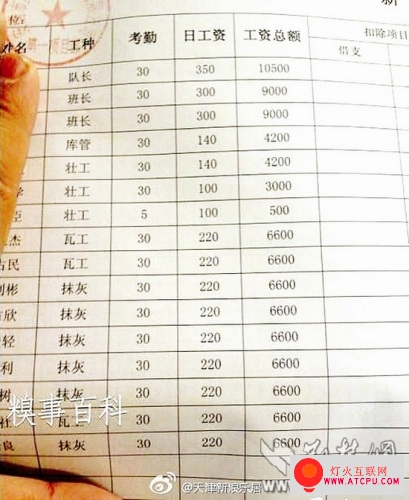 位:
姓名 工种 考勤 日工资 工资总额 扣除项目
借支
队长 30 350 10500
班长 30 300 9000
班长 30 300 9000
库管 30 140 4200
壮工 30 140 4200
壮工 30 100 3000
臣 壮工 5 100 500
杰 瓦工 30 220 6600
民 瓦工 30 220 6600
彬 抹灰 30 220 6600
欣 抹灰 30 220 6600
轻 抹灰 30 220 6600
利 抹灰 30 220 6600
树 抹灰 30 220 6600
瓦工 30 220 6600
良 抹灰 30 220 6600
糗事百科
@天津新浪乐居
灯火互联网
WWW.ATCPU.COM